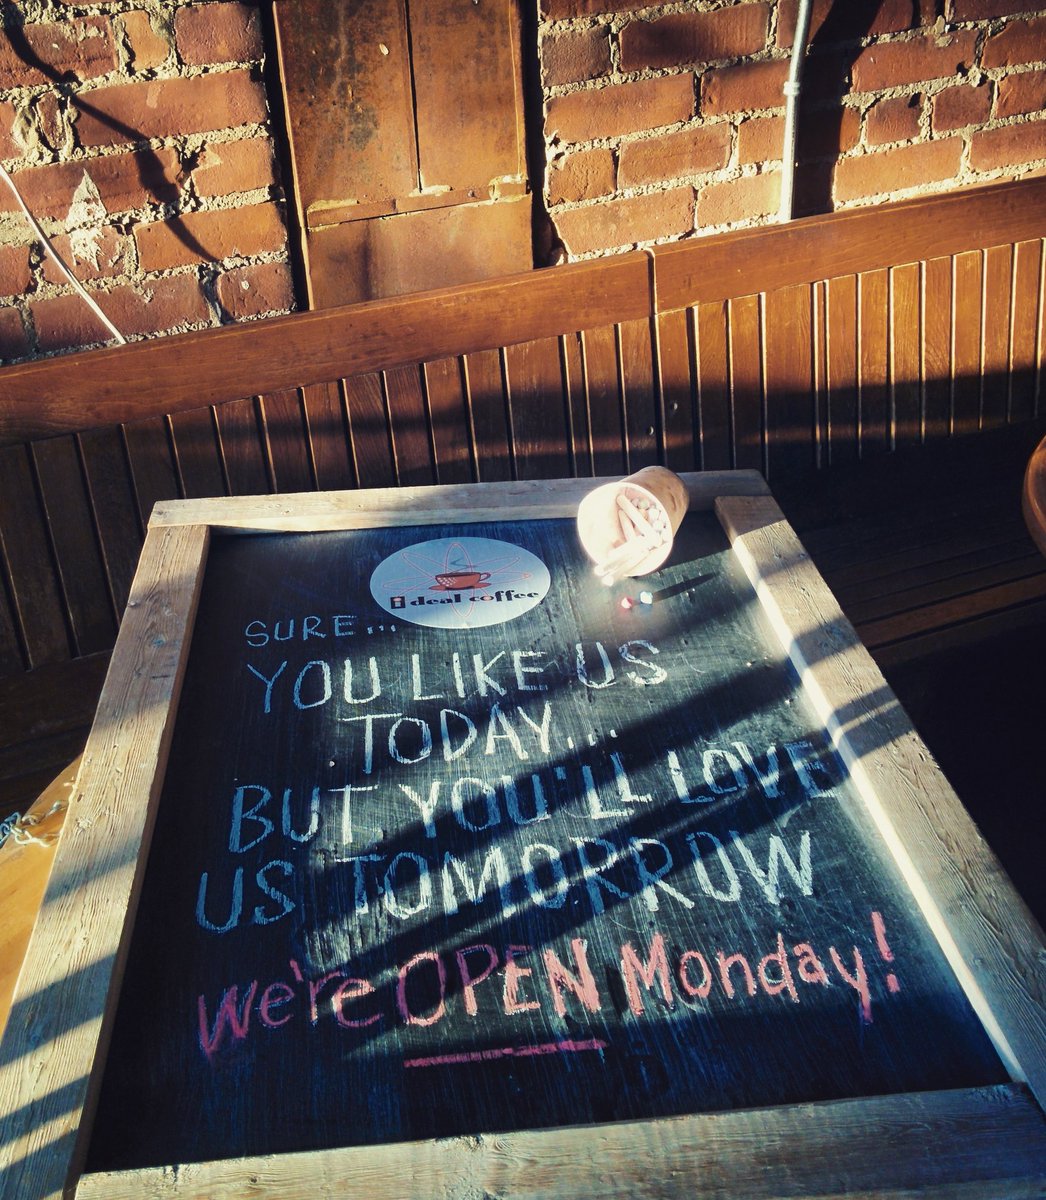 ideal coffee
SURE...
YOU LIKE US
TODAY...
BUT YOU'LL LOVE
US TOMORROW
We're OPEN Monday!